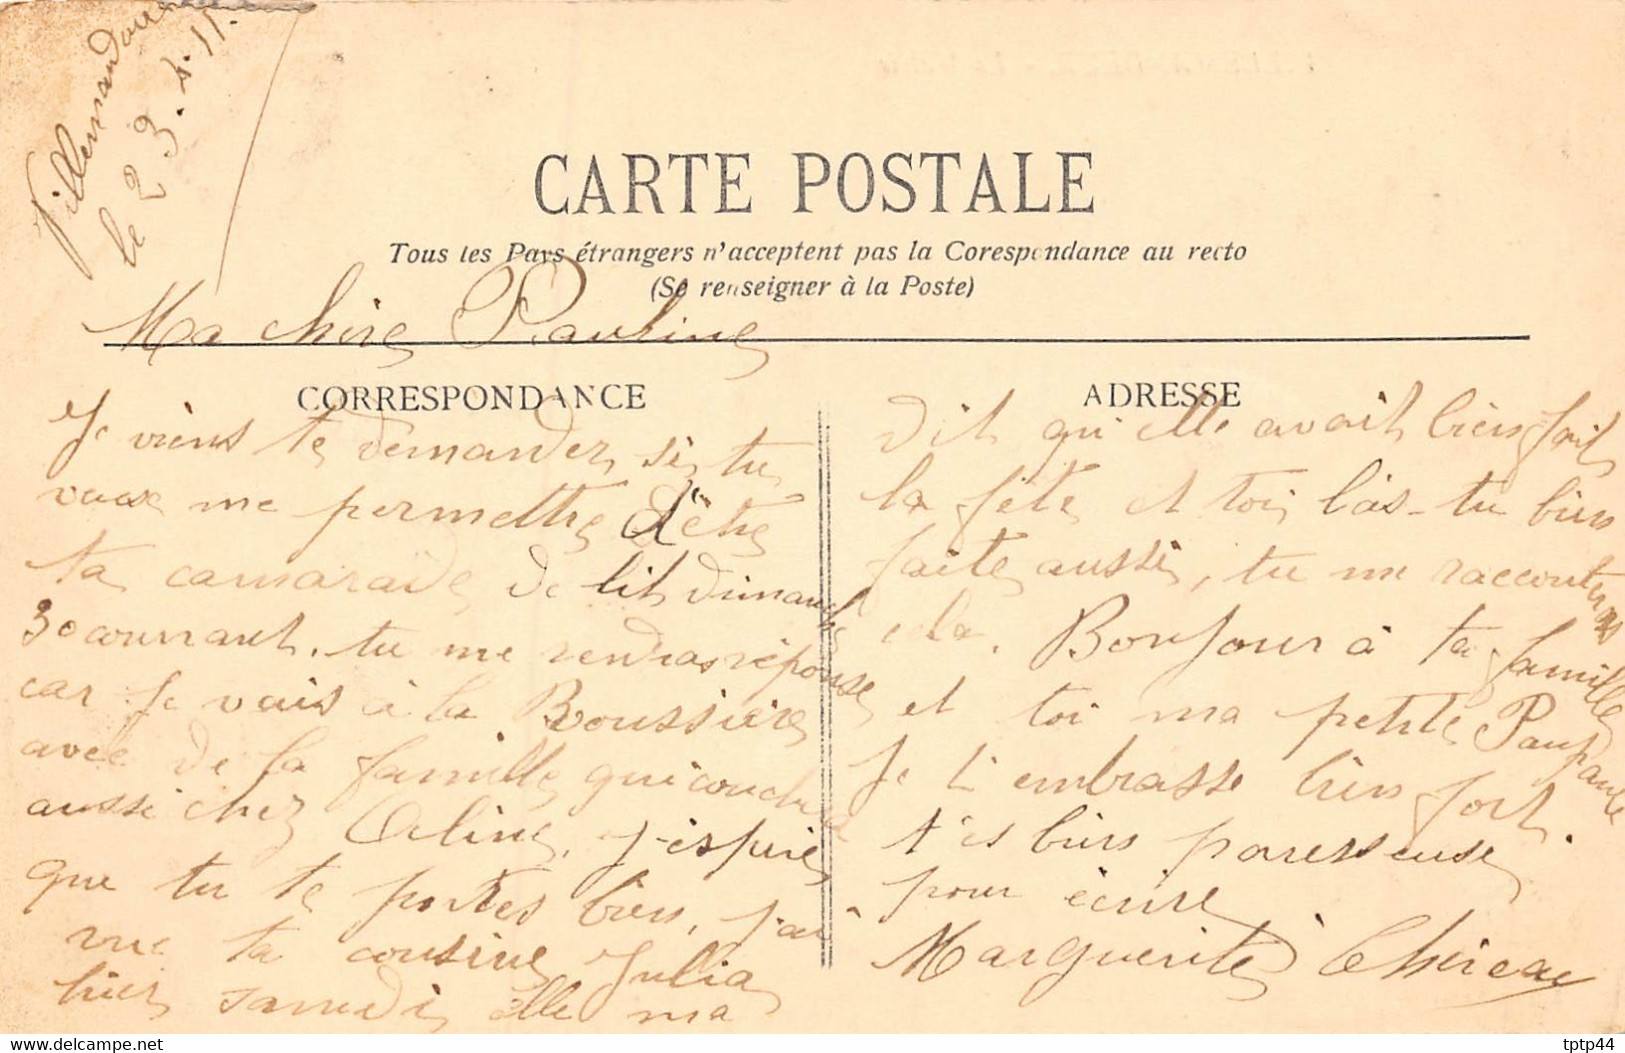 Villemandeur
le 23.4.11.
CARTE POSTALE
Tous les Pays étrangers n'acceptent pas la Corespondance au recto
(Se renseigner à la Poste)
Ma chère Pauline
CORRESPONDANCE
Je viens te demander si tu
veux me permettre d'être
ta camarade de lit dimanche
30 courrant. tu me rendras réponse
car je vais à la Boussière
avec de la famille qui couche
aussi chez Celine, j'espère
que tu te portes bien, j'ai
vue ta cousine Julia
hier samedi elle ma
ADRESSE
dit qu'elle avait bien fait
la fête et toi l'as-tu bien
faite aussi, tu me raconteras
cela. Bonjour à ta famille
et toi ma petite Paupaule
Je t'embrasse bien fort.
t'es bien paresseuse
pour écrire
Marguerite Chéreau
delcampe.net
tptp44